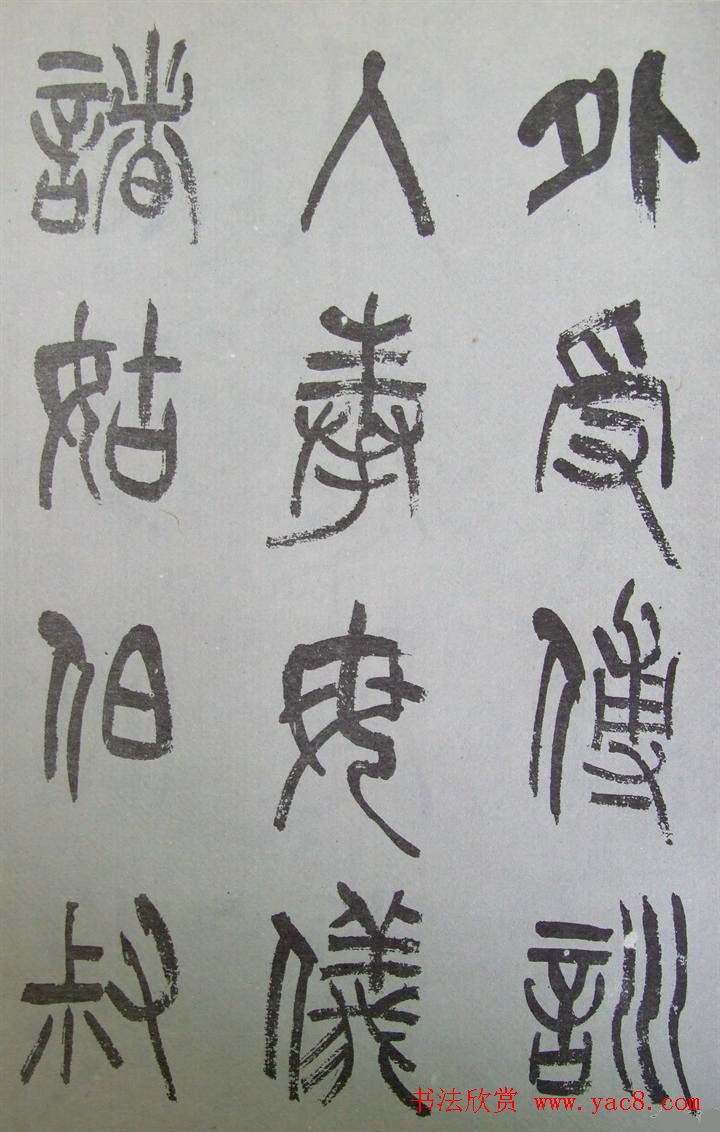 外受傅訓
人奉母儀
諸姑伯叔
书法欣赏 www.yac8.com